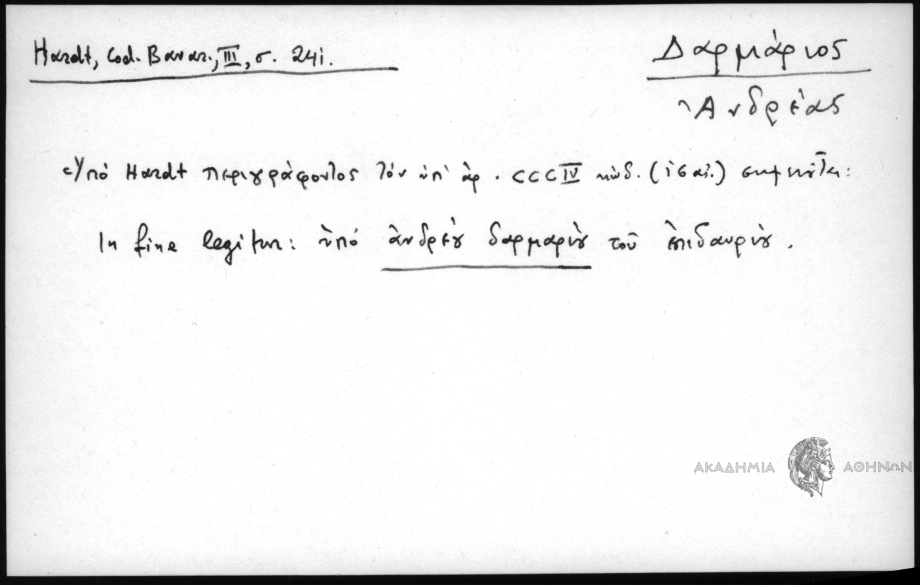 Hardt, Cod. Bavar., III, σ. 241.
Δαρμάριος
Ἀνδρέας
Ὑπό Hardt περιγράφοντος τόν ὑπ' ἀρ. CCCIV κώδ. (ις αἰ.) σημειοῦται:
In fine legitur: ὑπό ἀνδρέȣ δαρμαρίȣ τοῦ ἐπιδαυρίȣ.
ΑΚΑΔΗΜΙΑ ΑΘΗΝΩΝ